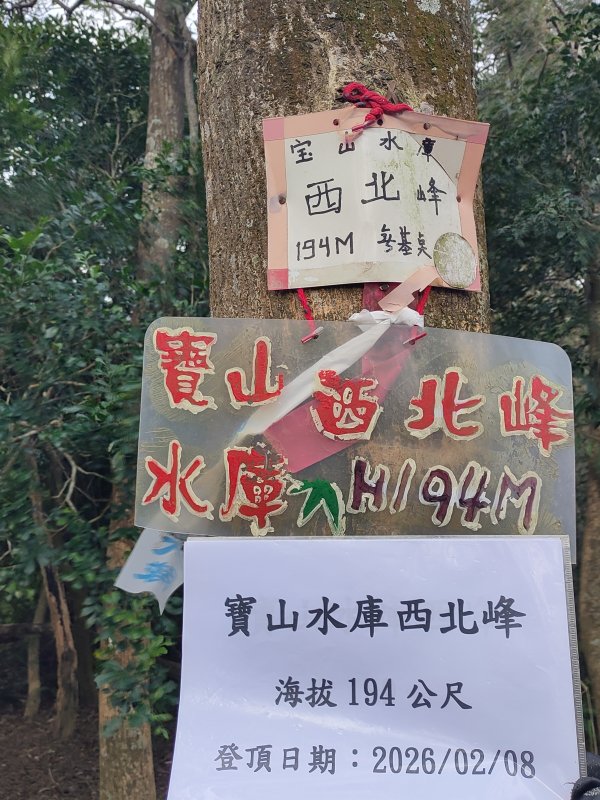 宝山水庫
西北峰
194M 無基点
寶山西北峰
水庫H194M
寶山水庫西北峰
海拔 194 公尺
登頂日期：2026/02/08